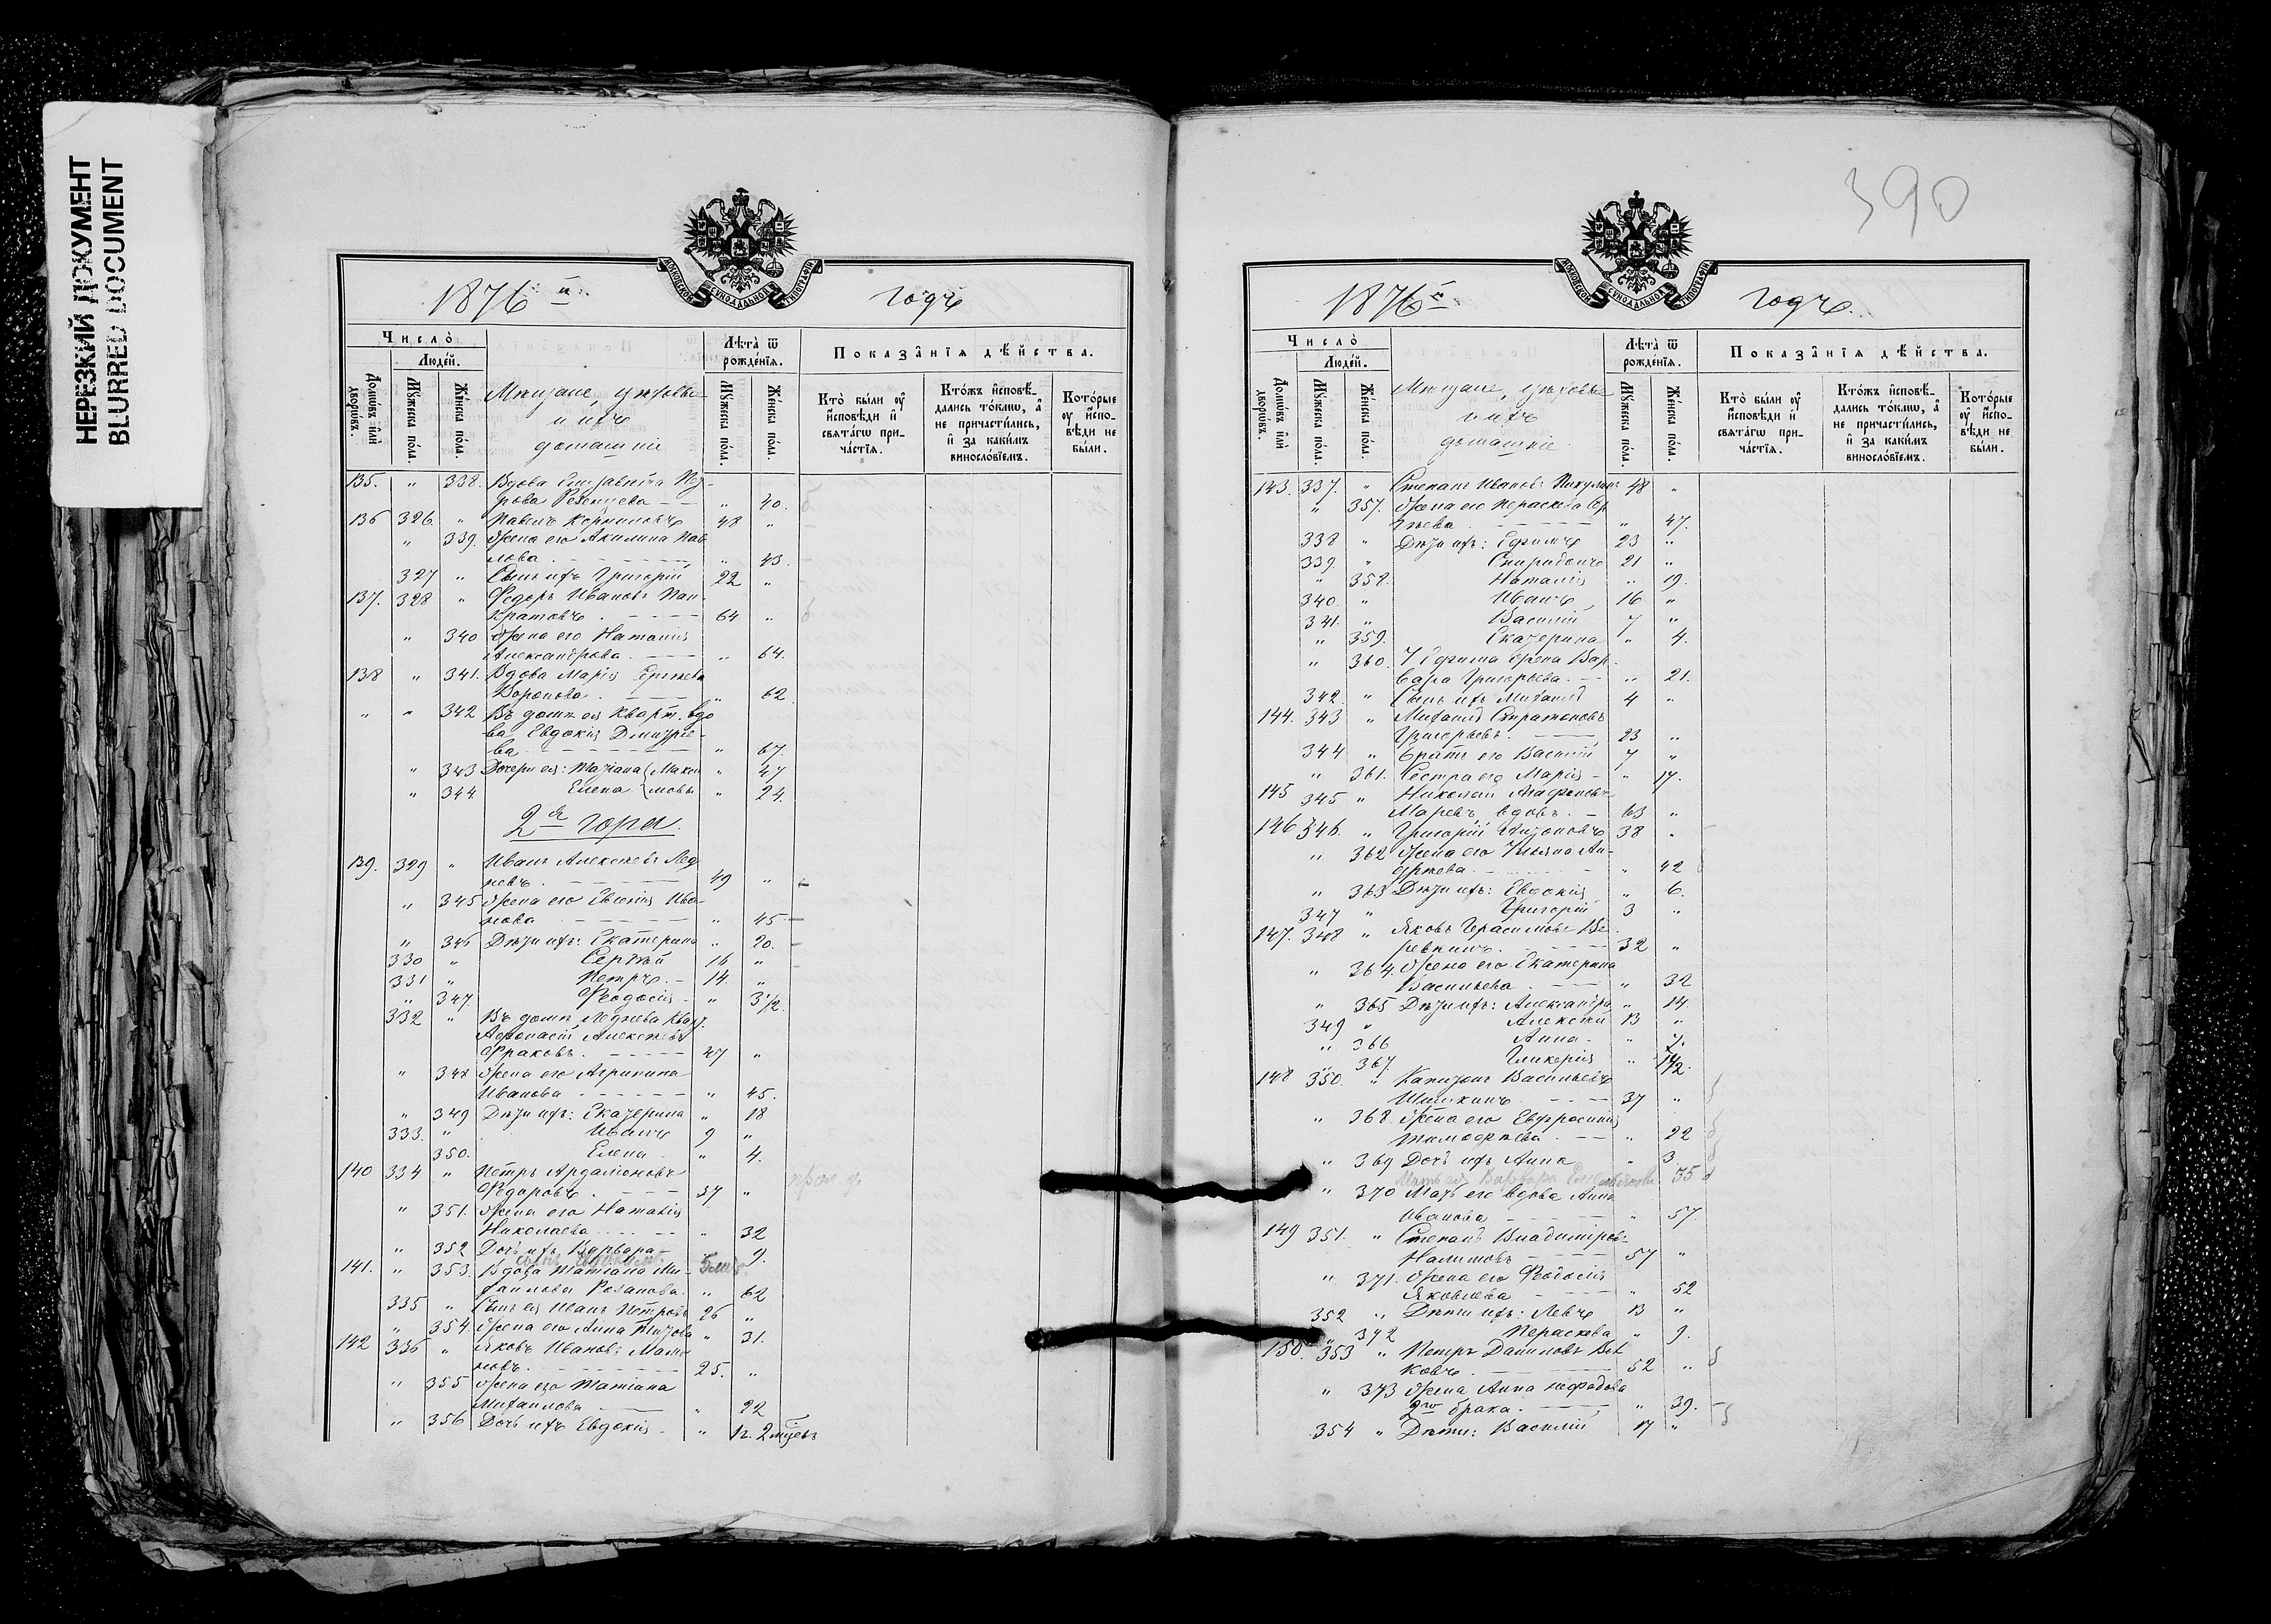 НЕРЕЗКИЙ ДОКУМЕНТ
BLURRED DOCUMENT
МОСКОВСКОЙ СѴНОДАЛЬНОЙ ТИПОГРАФІИ
1876 й годъ
Число̀
Людей.
Домѡвъ или дворѡвъ.
Мꙋжеска пола.
Женска пола.
Мѣщане, цѣховые
и ихъ
домашніе
Лѣта ѿ рожденїѧ.
Мꙋжеска пола.
Женска пола.
Показанїѧ дѣйства.
Кто были ѹ исповѣди и свѧтагѡ причастїѧ.
Ктожъ исповѣдались токмѡ, а не причастились, и за какимъ винословїемъ.
Которые ѹ исповѣди не были.
135. " 338. Вдова Елизавета Пет-
рова " 40.
136 326. " Павелъ 48 "
" 339. Жена его Акилина Пав-
лова " 43.
327 " Сынъ ихъ Григорій 22 "
137. 328 " Ѳедоръ Ивановъ Пан-
кратовъ 64 "
" 340 Жена его Наталія
Александрова " 64.
138 " 341. Вдова Марія Сергѣева
Воронова " 62
" " 342 Въ домѣ ея кварт. вдо
ва Евдокія Дмитріе-
ва " 67.
" 343 Дочери ея: Татіана Макси " 27
" 344 Елена мовы " 24.
2я гора.
139. 329 " Иванъ Алексѣевъ Лед
невъ 49 "
" 345 Жена его Евгенія Ива
нова " 45
" 346 Дѣти ихъ: Екатерина " 20.
330 " Сергѣй 16 "
331 " Петръ. 14. "
" 347. Ѳеодосія " 3 1/2.
332 " Въ домѣ Леднева кварт.
Аѳонасій Алексѣевъ
Фраковъ 47 "
" 348 Жена его Агрипина
Иванова " 45.
" 349 Дѣти ихъ: Екатерина " 18
333. " Иванъ 9 "
350. Елена " 4.
140 334 " Петръ Ардаліоновъ
Ѳедоровъ 37 "
" 351. Жена его Наталія
Николаева " 32
" 352 Дочь ихъ Варвара 9.
141. " 353. Вдова Татіана Ми-
хаилова Розанова. " 62
335 " Сынъ ея Иванъ Петровъ 26 "
" 354. Жена его Анна Титова " 31.
142 336 " Яковъ Ивановъ Мамо
новъ 25. "
" 355 Жена его Татіана
Михаилова " 22
" 356 Дочь ихъ Евдокія " 1г. 2 мѣсяцъ
390
МОСКОВСКОЙ СѴНОДАЛЬНОЙ ТИПОГРАФІИ
1876 й годъ.
Число̀
Людей.
Домѡвъ или дворѡвъ.
Мꙋжеска пола.
Женска пола.
Мѣщане, цѣховые
и ихъ
домашніе
Лѣта ѿ рожденїѧ.
Мꙋжеска пола.
Женска пола.
Показанїѧ дѣйства.
Кто были ѹ исповѣди и свѧтагѡ причастїѧ.
Ктожъ исповѣдались токмѡ, а не причастились, и за какимъ винословїемъ.
Которые ѹ исповѣди не были.
143. 337. " Степанъ Ивановъ 48 "
" 357. Жена его Параскева Сер
гѣева " 47.
338 " Дѣти ихъ: Ефимъ 23 "
339. " Спиридонъ 21 "
" 358. Наталія " 19.
340. " Иванъ 16 "
341. " Василій 7 "
" 359. Екатерина " 4.
" 360. У Ефима жена Вар-
вара Григорьева. " 21.
342. " Сынъ ихъ Михаилъ 4 "
144. 343 " Михаилъ
Григорьевъ. 23 "
344 " Братъ его Василій 7 "
" 361. Сестра его Марія " 17.
145 345 " Николай Агафоновъ
Маревъ вдовъ. 63 "
146 346. " Григорій Антоновъ 38 "
" 362 Жена его Ульяна Ан-
дреева " 42
" 363 Дѣти ихъ: Евдокія " 6.
347 " Григорій 3 "
147. 348 " Яковъ Герасимовъ Ве-
ревкинъ. 32 "
" 364. Жена его Екатерина
Васильева " 32
" 365 Дѣти ихъ: Александра " 14.
349 " Алексѣй 13 "
" 366 Анна " 7.
" 367. Гликерія " 1 1/2.
148 350. " Капитонъ Васильевъ
Шишкинъ 37 "
" 368. Жена его Евфросинія
Тимоѳеева " 22
" 369 Дочь ихъ Анна " 3
Мать ея Варвара 55
" 370 Мать его вдова Анна
Иванова " 57.
149 351. " Степанъ Владиміров.
Налимовъ 57 "
" 371. Жена его Ѳеодосія
Яковлева " 52
352 " Дѣти ихъ: Левъ 13 "
" 372 Параскева " 9.
150. 353 " Петръ Даниловъ
ковъ. 52 "
" 373 Жена Анна Нефедова
2го брака. " 39.
354 " Дѣти: Василій 17 "